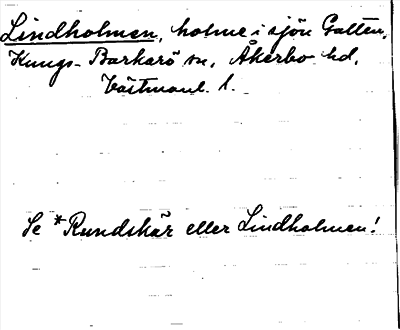 Lindholmen, holme i sjön Galten,
Kungs-Barkarö sn, Åkerbo hd,
Västmanl. l.
Se *Rundskär eller Lindholmen!